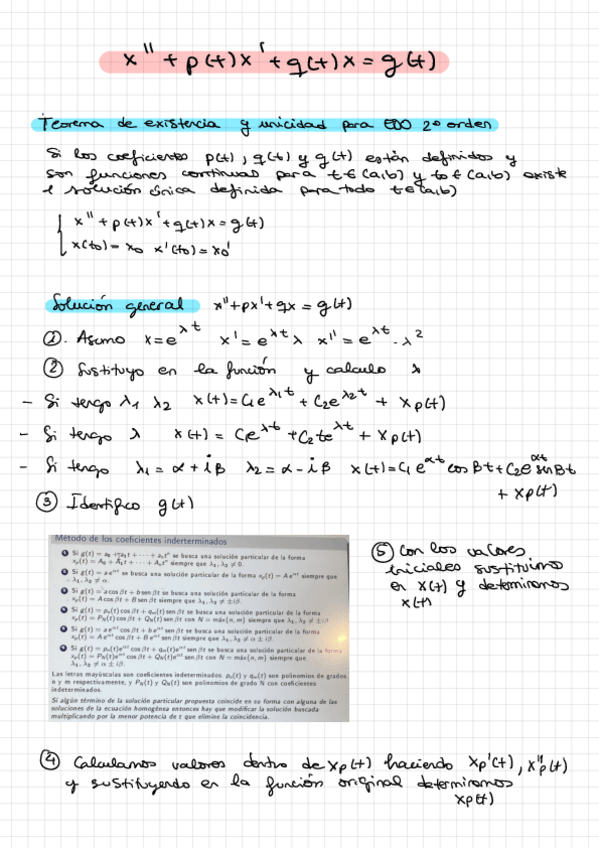 x'' + p(t)x' + q(t)x = g(t)
Teorema de existencia y unicidad para EDO 2º orden
Si los coeficientes p(t), q(t) y g(t) están definidos y
son funciones continuas para t∈(a,b) y to∈(a,b) existe
1 solución única definida para todo t∈(a,b)
x'' + p(t)x' + q(t)x = g(t)
x(to) = x0 x'(to) = x0'
Solución general x''+px'+qx = g(t)
①. Asumo x=e^λt x'=e^λt λ x''=e^λt·λ²
② Sustituyo en la función y calculo λ
- Si tengo λ1 λ2 x(t)=C1e^λ1t + C2e^λ2t + xp(t)
- Si tengo λ x(t) = C1e^λt + C2te^λt + xp(t)
- Si tengo λ1 = α + iβ λ2 = α - iβ x(t)=C1 e^αt cos βt + C2e^αt sen βt
+ xp(t)
③ Identifico g(t)
Método de los coeficientes indeterminados
1 Si g(t) = a0 + a1t + ··· + antⁿ se busca una solución particular de la forma
xp(t) = A0 + A1t + ··· + Antⁿ siempre que λ1, λ2 ≠ 0.
2 Si g(t) = a e^αt se busca una solución particular de la forma xp(t) = A e^αt siempre que
λ1, λ2 ≠ α.
3 Si g(t) = a cos βt + b sen βt se busca una solución particular de la forma
xp(t) = A cos βt + B sen βt siempre que λ1, λ2 ≠ ±iβ.
4 Si g(t) = pn(t) cos βt + qm(t) sen βt se busca una solución particular de la forma
xp(t) = PN(t) cos βt + QN(t) sen βt con N = máx(n, m) siempre que λ1, λ2 ≠ ±iβ
5 Si g(t) = a e^αt cos βt + b e^αt sen βt se busca una solución particular de la forma
xp(t) = A e^αt cos βt + B e^αt sen βt siempre que λ1, λ2 ≠ α ± iβ.
6 Si g(t) = pn(t)e^αt cos βt + qm(t)e^αt sen βt se busca una solución particular de la forma
xp(t) = PN(t)e^αt cos βt + QN(t)e^αt sen βt con N = máx(n, m) siempre que
λ1, λ2 ≠ α ± iβ.
Las letras mayúsculas son coeficientes indeterminados. pn(t) y qm(t) son polinomios de grados
n y m respectivamente, y PN(t) y QN(t) son polinomios de grado N con coeficientes
indeterminados.
Si algún término de la solución particular propuesta coincide en su forma con alguna de las
soluciones de la ecuación homogénea entonces hay que modificar la solución buscada
multiplicando por la menor potencia de t que elimine la coincidencia.
⑤ Con los valores
iniciales sustituimos
en x(t) y determinamos
x(t)
④ Calculamos valores dentro de xp(t) haciendo xp'(t), x''p(t)
y sustituyendo en la función original determinamos
xp(t)